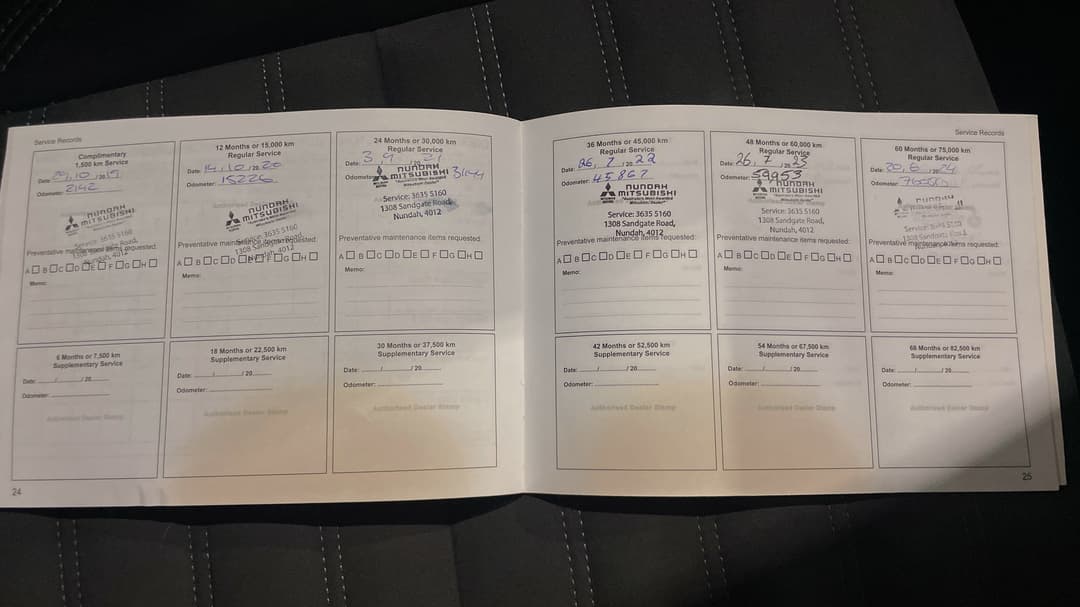 Service Records
Complimentary
1,500 km Service
Date: 29, 10 /2019
Odometer: 2142
NUNDAH
MITSUBISHI
Service: 3635 5160
1308 Sandgate Road,
Nundah, 4012
Preventative maintenance items requested.
A B C D E F G H
Memo:
12 Months or 15,000 km
Regular Service
Date: 14, 10 /20 20
Odometer: 15226
NUNDAH
MITSUBISHI
Service: 3635 5160
1308 Sandgate Road,
Nundah, 4012
Preventative maintenance items requested:
A B C D E F G H
Memo:
24 Months or 30,000 km
Regular Service
Date: 3, 9 /20 21
Odometer:
NUNDAH
MITSUBISHI
"Australia's Most Awarded
Mitsubishi Dealer"
Service: 3635 5160
1308 Sandgate Road,
Nundah, 4012
Preventative maintenance items requested.
A B C D E F G H
Memo:
6 Months or 7,500 km
Supplementary Service
Date: / /20
Odometer:
Authorised Dealer Stamp
18 Months or 22,500 km
Supplementary Service
Date: / /20
Odometer:
Authorised Dealer Stamp
30 Months or 37,500 km
Supplementary Service
Date: / /20
Odometer:
Authorised Dealer Stamp
24
Service Records
36 Months or 45,000 km
Regular Service
Date: 26, 7 /20 22
Odometer: 45867
NUNDAH
MITSUBISHI
"Australia's Most Awarded
Mitsubishi Dealer"
Service: 3635 5160
1308 Sandgate Road,
Nundah, 4012
Preventative maintenance items requested:
A B C D E F G H
Memo:
48 Months or 60,000 km
Regular Service
Date: 26, 7 /20 23
Odometer: 59953
NUNDAH
MITSUBISHI
"Australia's Most Awarded
Mitsubishi Dealer"
Service: 3635 5160
1308 Sandgate Road,
Nundah, 4012
Preventative maintenance items requested:
A B C D E F G H
Memo:
60 Months or 75,000 km
Regular Service
Date: 20, 6 /20 24
Odometer:
NUNDAH
Service: 3635 5160
1308 Sandgate Road
Preventative maintenance items requested:
A B C D E F G H
Memo:
42 Months or 52,500 km
Supplementary Service
Date: / /20
Odometer:
Authorised Dealer Stamp
54 Months or 67,500 km
Supplementary Service
Date: / /20
Odometer:
Authorised Dealer Stamp
66 Months or 82,500 km
Supplementary Service
Date: / /20
Odometer:
Authorised Dealer Stamp
25